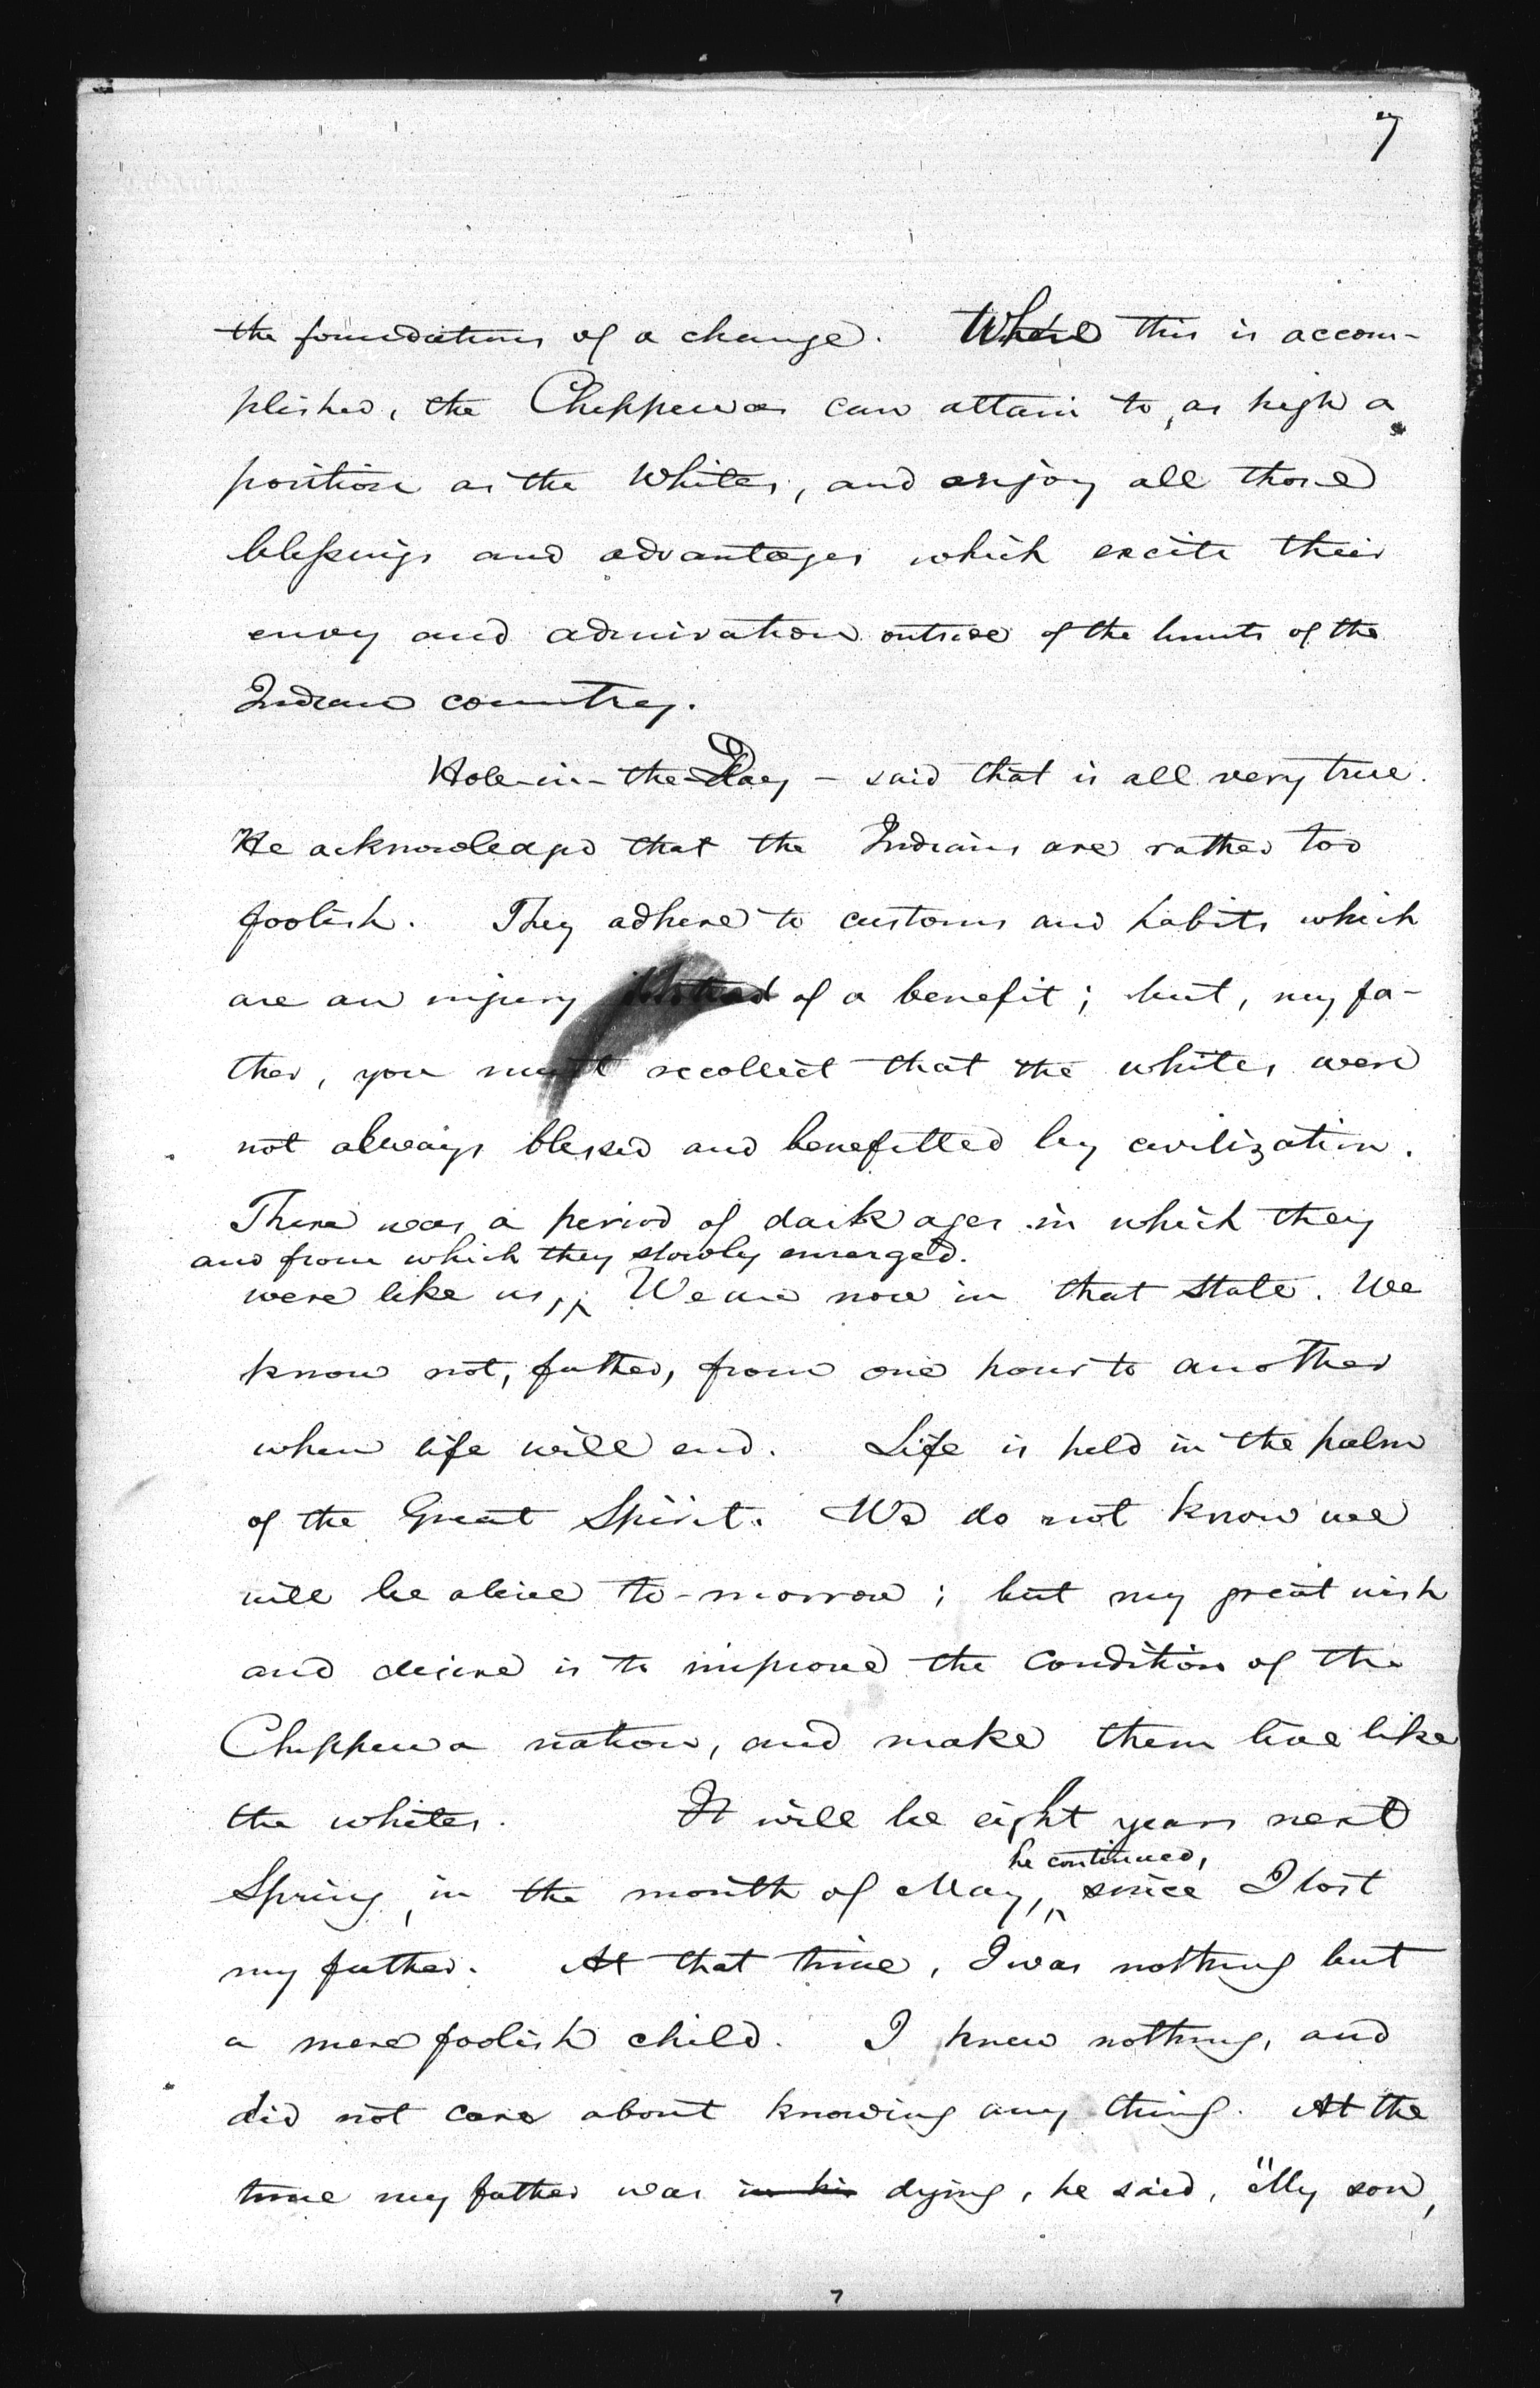 7
the foundations of a change. When this is accom-
plished, the Chippewas can attain to, as high a
position as the Whites, and enjoy all those
blessings and advantages which excite their
envy and admiration outside of the limits of the
Indian country.
Hole-in-the-Day - said that is all very true.
He acknowledged that the Indians are rather too
foolish. They adhere to customs and habits which
are an injury instead of a benefit; but, my fa-
ther, you must recollect that the whites were
not always blessed and benefitted by civilization.
There was a period of dark ages in which they
and from which they slowly emerged.
were like us, We are now in that state. We
know not, father, from one hour to another
when life will end. Life is held in the palm
of the Great Spirit. We do not know we
will be alive to-morrow; but my great wish
and desire is to improve the condition of the
Chippewa nation, and make them live like
the whites. It will be eight years next
he continued,
Spring, in the month of May, since I lost
my father. At that time, I was nothing but
a mere foolish child. I knew nothing, and
did not care about knowing any thing. At the
time my father was in his dying, he said, "My son,
7